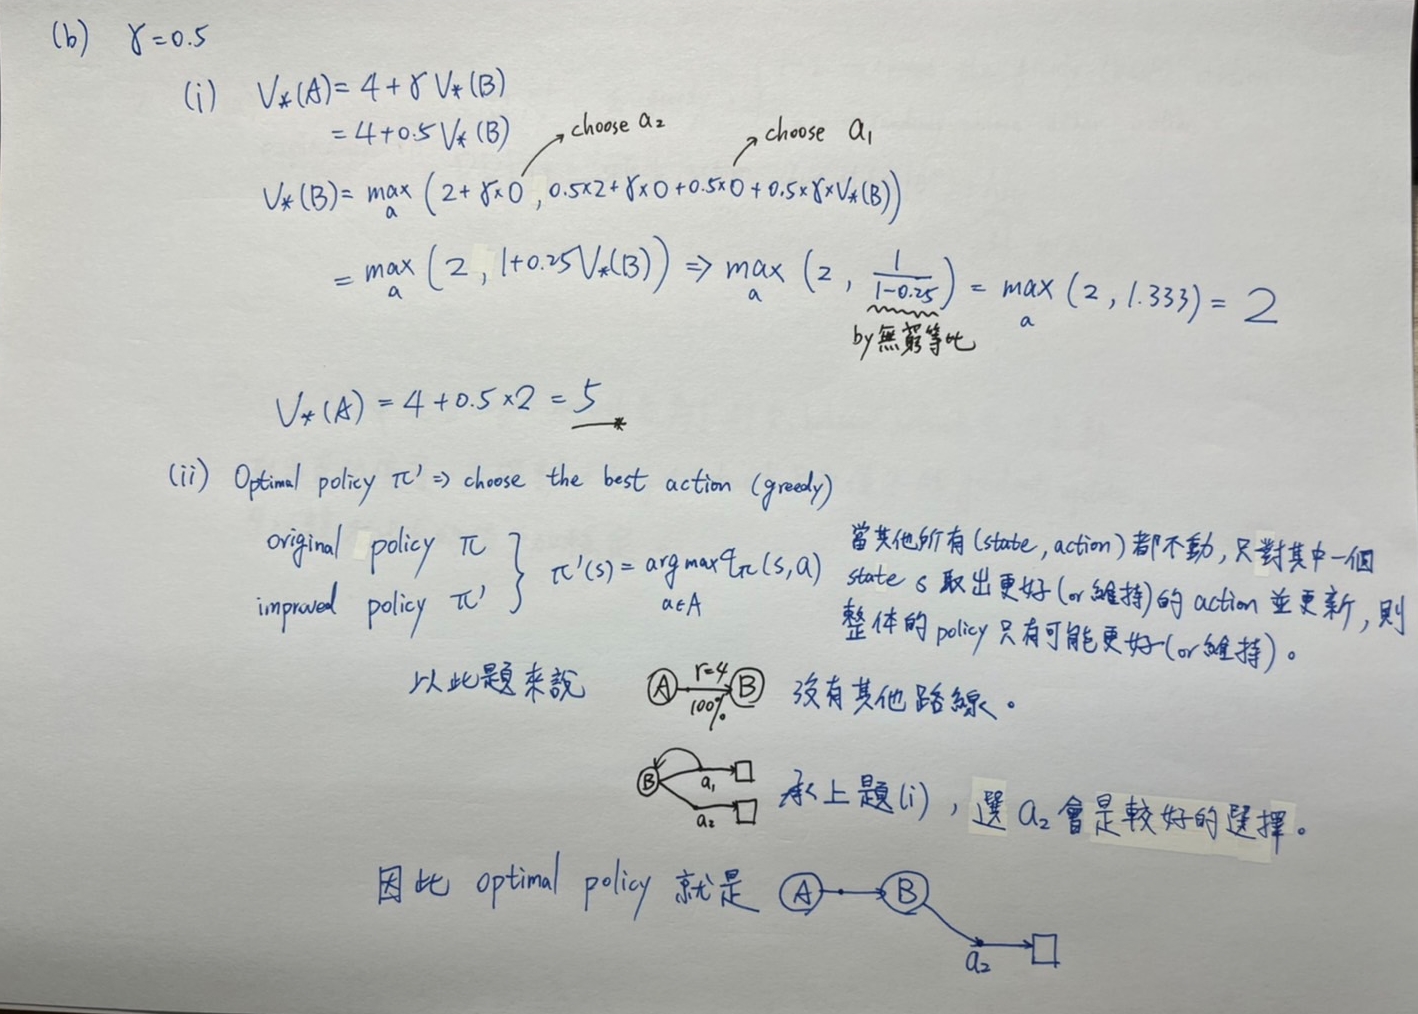 (b) γ=0.5
(i) V*(A)= 4+γ V*(B)
= 4+0.5 V*(B)
choose a₂
choose a₁
V*(B)= max a (2+γ×0, 0.5×2+γ×0+0.5×0+0.5×γ×V*(B))
= max a (2, 1+0.25V*(B)) ⇒ max a (2, 1/(1-0.25)) = max a (2, 1.333) = 2
by 無窮等比
V*(A) = 4+0.5×2 = 5 *
(ii) Optimal policy π' ⇒ choose the best action (greedy)
original policy π
improved policy π'
} π'(s) = argmax a∈A qπ(s,a)
當其他所有(state, action)都不動,只對其中一個
state s 取出更好(or 維持)的 action 並更新,則
整体的 policy 只有可能更好(or 維持)。
以此題來說
A r=4 100% B 沒有其他路線。
B a₁ a₂ 承上題(i),選 a₂ 會是較好的選擇。
因此 optimal policy 就是 A B
a₂